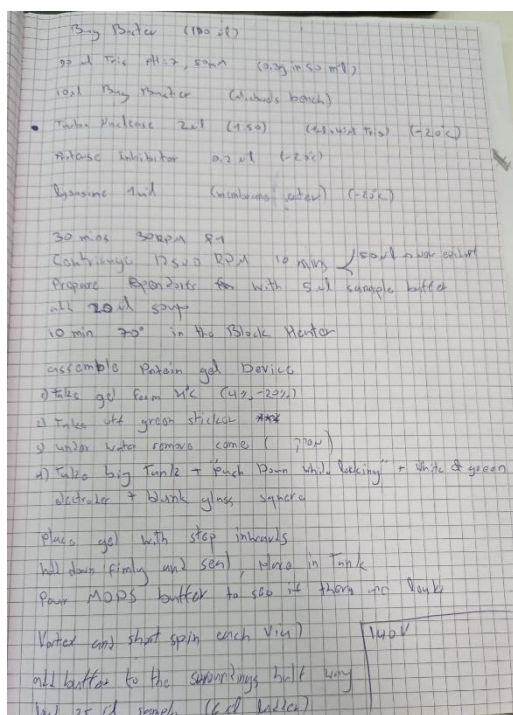 Bug Buster (100 ul)
90 ul Tris pH=7, 50mM (0.3g in 50 ml)
10ul Bug Buster
Turbo Nuclease 2ul (1:50) (-20°C)
Protease Inhibitor 0.2 ul (-20°C)
1ul (-20°C)
30 mins 30RPM
Centrifuge 12500 RPM 10 mins 50ul
Prepare with 5ul sample buffer
add 20ul soup
10 min 70° in the Block Heater
assemble Protein gel Device
1) Take gel from 4°C (4%-20%)
2) Take off green sticker
3) under water remove come
4) Take big Tank + "Push Down while locking" + white & green
electrodes + blank glass square
place gel with step inwards
hold down firmly and seal, place in Tank
Pour MOPS buffer to see if there is leak
Vortex and short spin each vial
140V
add buffer to the surroundings half way
25 ul sample (6 ul ladder)